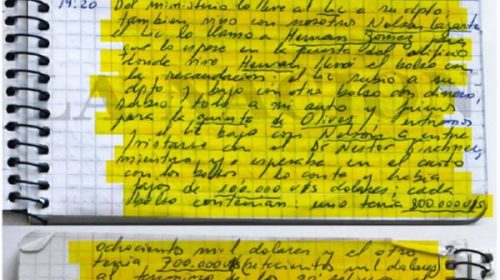 19:20 Del ministerio lo lleve al lic a su dpto
también vino con nosotros Nelson Lazarte
el lic lo llamo a Hernan Gomez para
que lo espere en la puerta del edificio
donde vive Hernan llevó el bolso con
la recaudación: el lic subio a su
dpto y bajo con otro bolso con dinero,
subio todo a mi auto y fuimos
para la quinta de Olivos y entramos
el lic bajo con Nelson a entre
vistarse con el Dr Nestor Kirchner
mientras yo esperaba en el auto
con los bolsos lo conte y habia
fajos de 100.000 u$s dolares; cada
bolso contenian uno tenia 800.000 u$s
ochocientos mil dolares y el otro
tenia 700.000 u$s (setecientos mil dolares)
LA NACION